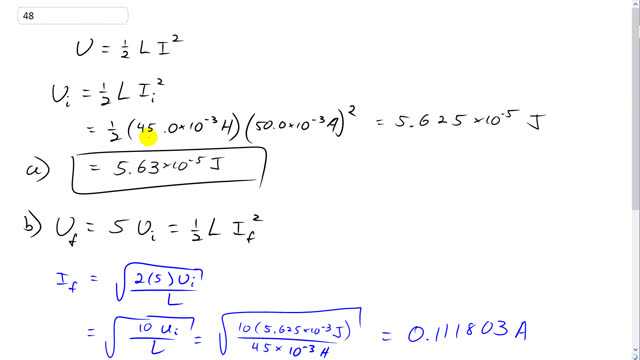 48
U = 1/2 L I^2
U_i = 1/2 L I_i^2
= 1/2 (45.0×10^-3 H)(50.0×10^-3 A)^2 = 5.625×10^-5 J
a) = 5.63×10^-5 J
b) U_f = 5 U_i = 1/2 L I_f^2
I_f = √(2(5)U_i / L)
= √(10 U_i / L) = √(10(5.625×10^-5 J) / 45×10^-3 H) = 0.111803 A